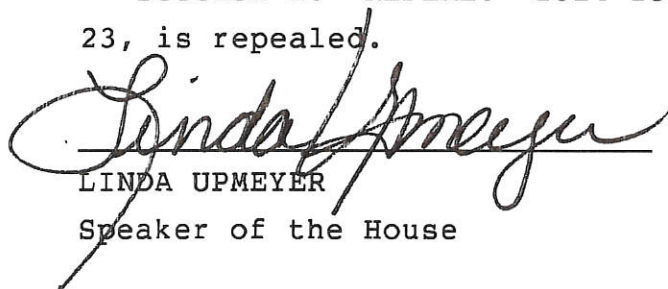 23, is repealed.
Linda Upmeyer
LINDA UPMEYER
Speaker of the House